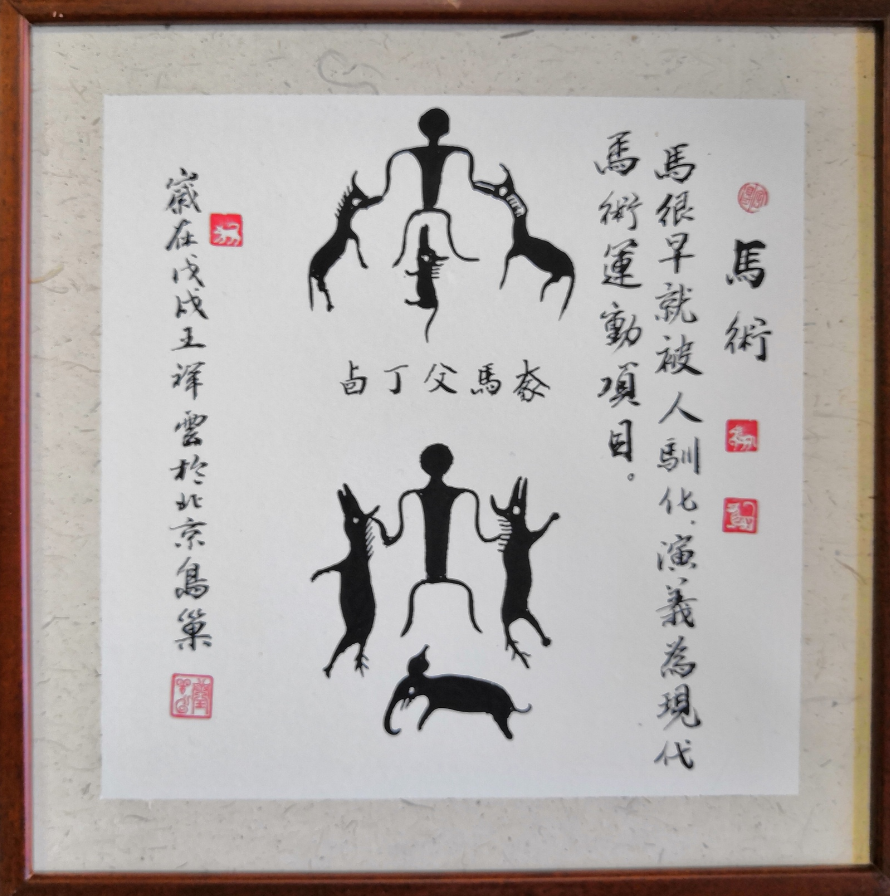 馬術
馬很早就被人馴化，演義為現代
馬術運動項目。
卣丁父馬豢
歲在戊戌王祥雲於北京鳥巢